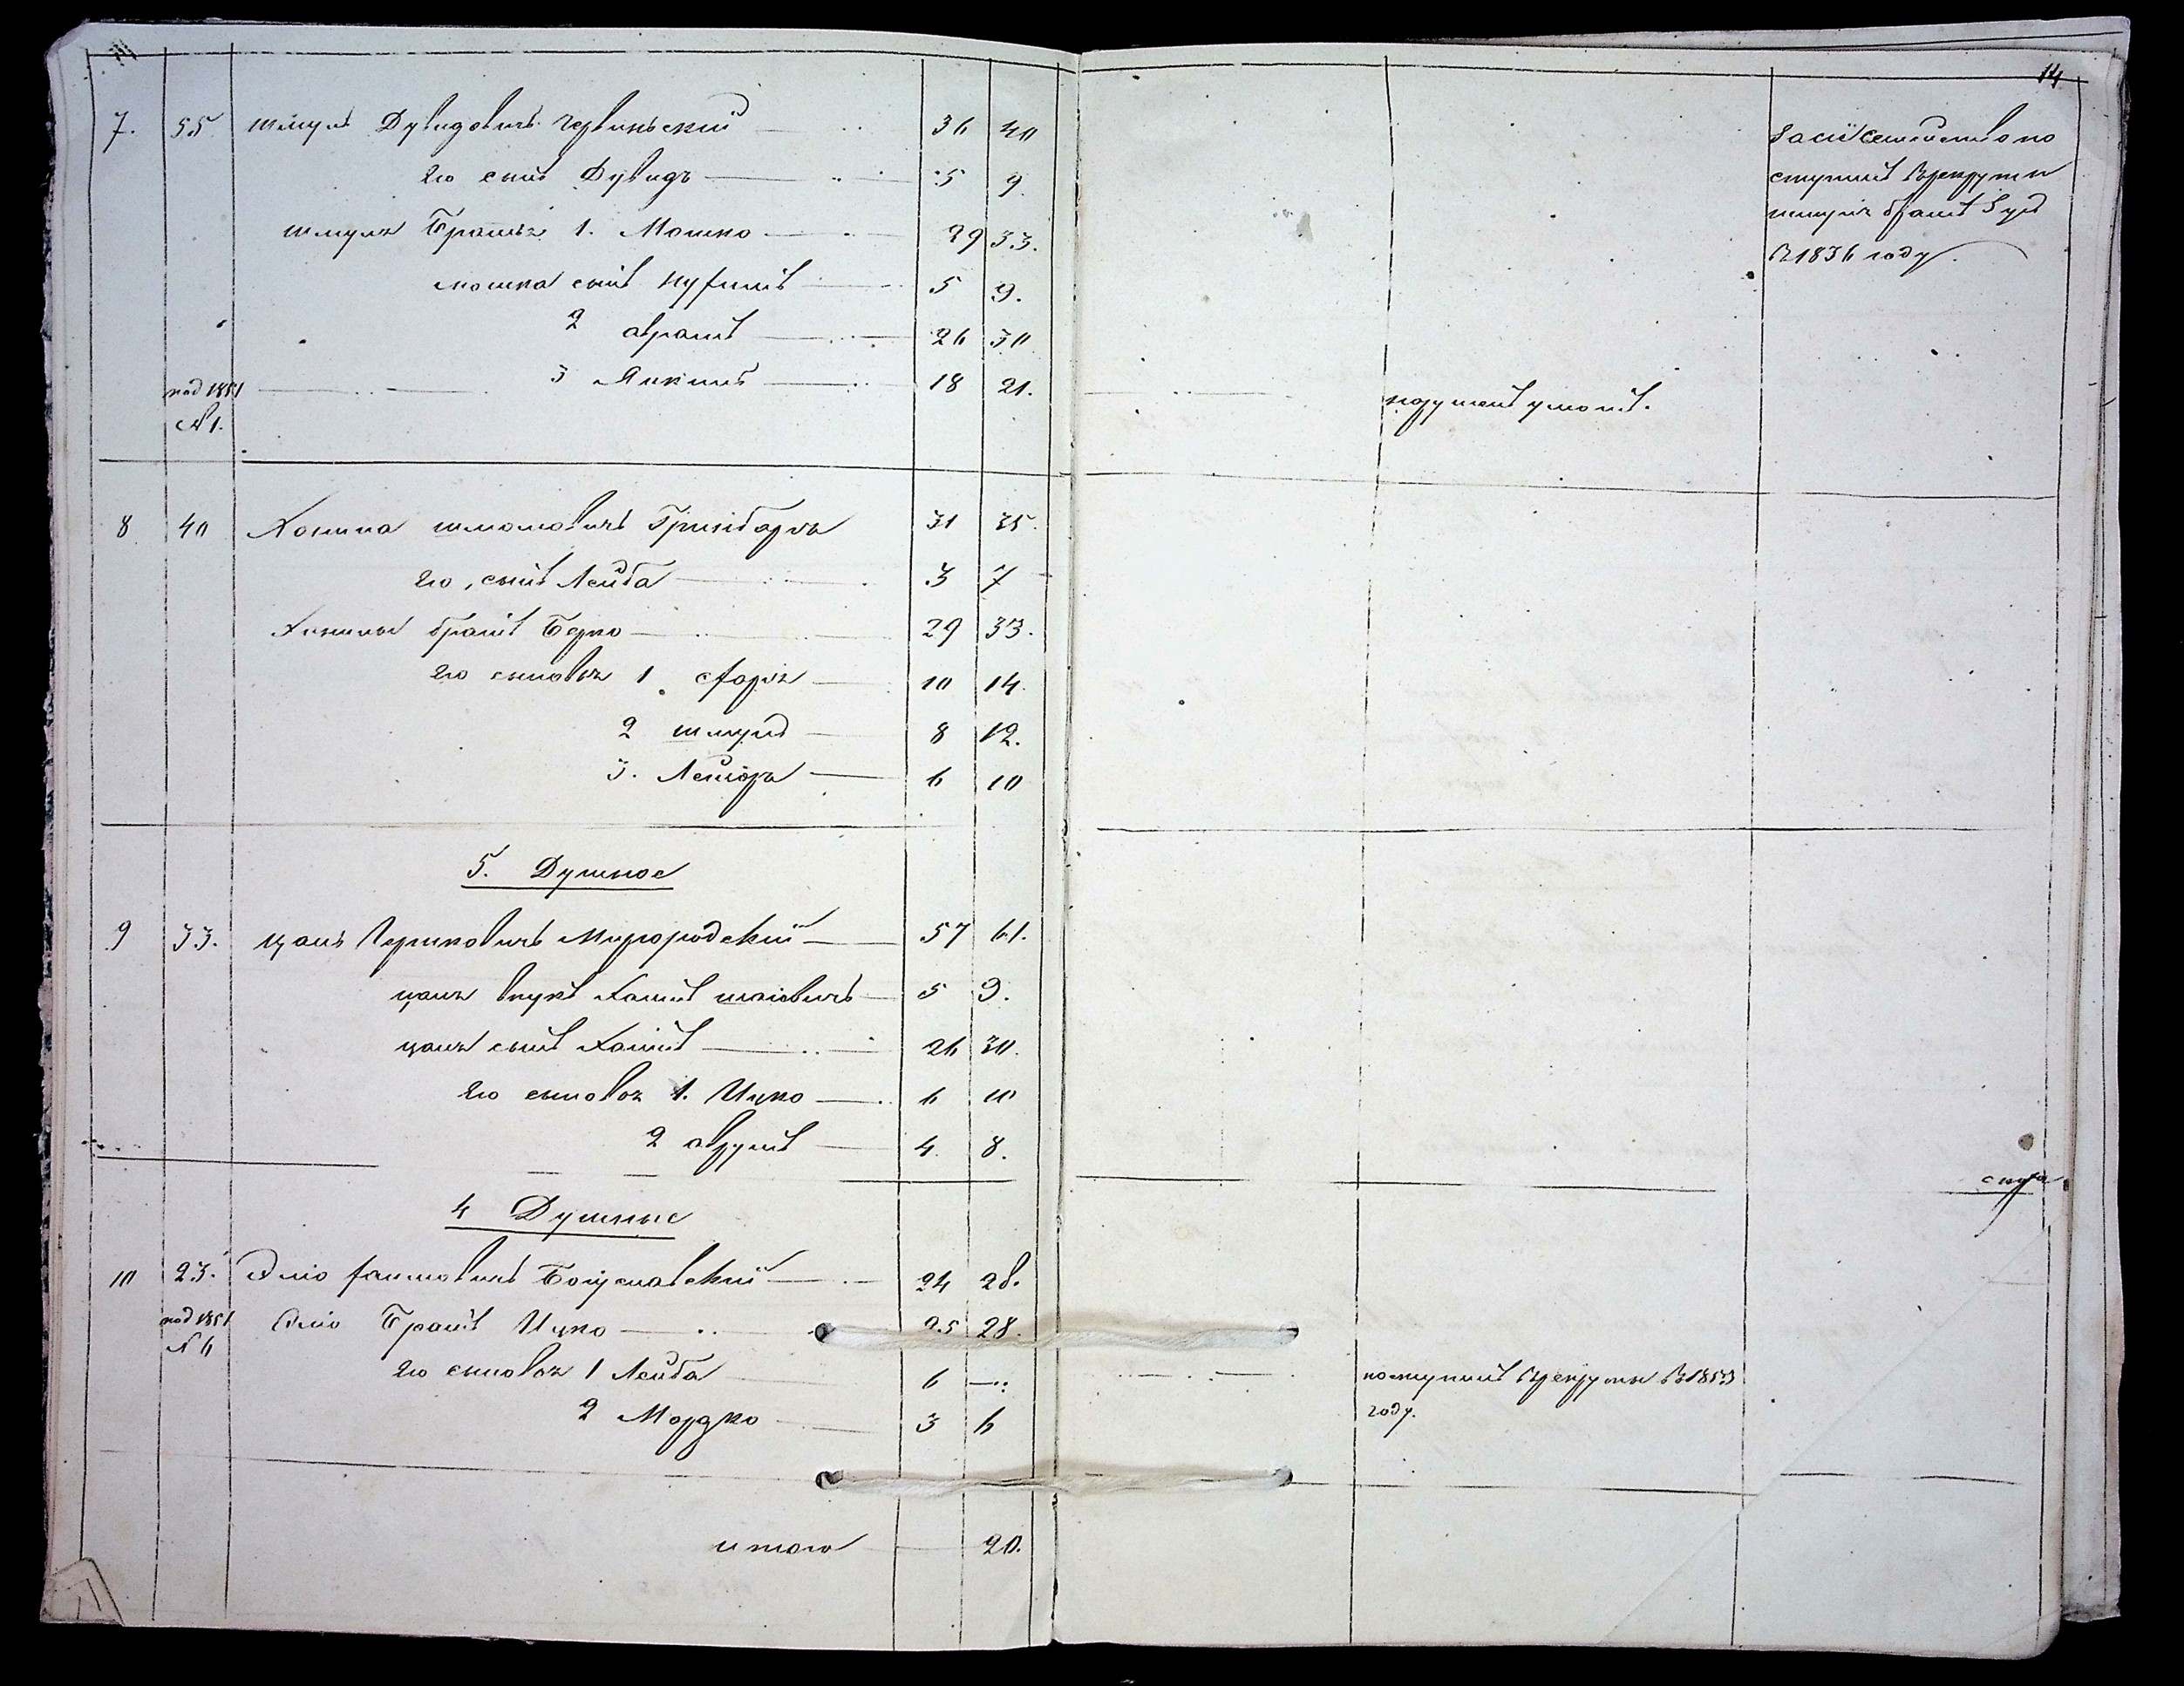 14
7. 55. Шмуль Дувидовичъ Червинский 36 40
его сынъ Дувидъ 5 9.
Шмуля Братья 1. Мошко 29 33.
Мошка сынъ Нухимъ 5 9.
2 Аврамъ 26 30
под 1851 3 Янкель 18 21.
№ 1.
За сие семейство по
ступилъ в рекруты
Шмуля братъ
в 1836 году.
8 40 Хонина Шмоловичъ 31 35.
его сынъ Лейба 3 7
Хонины братъ Берко 29 33.
его сыновья 1 10 14.
2 Шмуль 8 12.
3. Лейзоръ 6 10
5. Душное
9 33. Цаль Гершковичъ Миргородский 57 61.
Цаля внукъ Хаимъ 5 9.
Цаля сынъ Хаимъ 26 30.
его сыновья 1. Ицко 6 10
2 Аврумъ 4 8.
4 Душные
10 23. Элио Хаимовичъ Богуславский 24 28.
под 1851 Элио Братъ Ицко 25 28.
№ 6
его сыновья 1 Лейба 6 —
поступилъ в рекруты в 1853
году.
2 Мордко 3 6
итого 20.